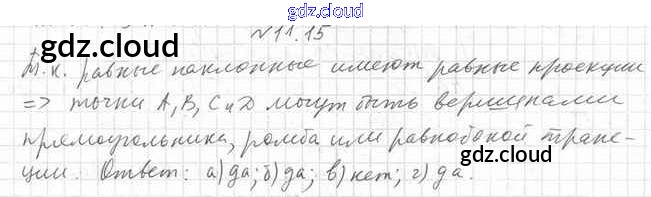 gdz.cloud
№11.15
gdz.cloud
Т.к. равные наклонные имеют равные проекции
=> точки A, B, C и D могут быть вершинами
прямоугольника, ромба или равнобокой трапе-
gdz.cloud
ции. Ответ: а) да; б) да; в) нет; г) да.